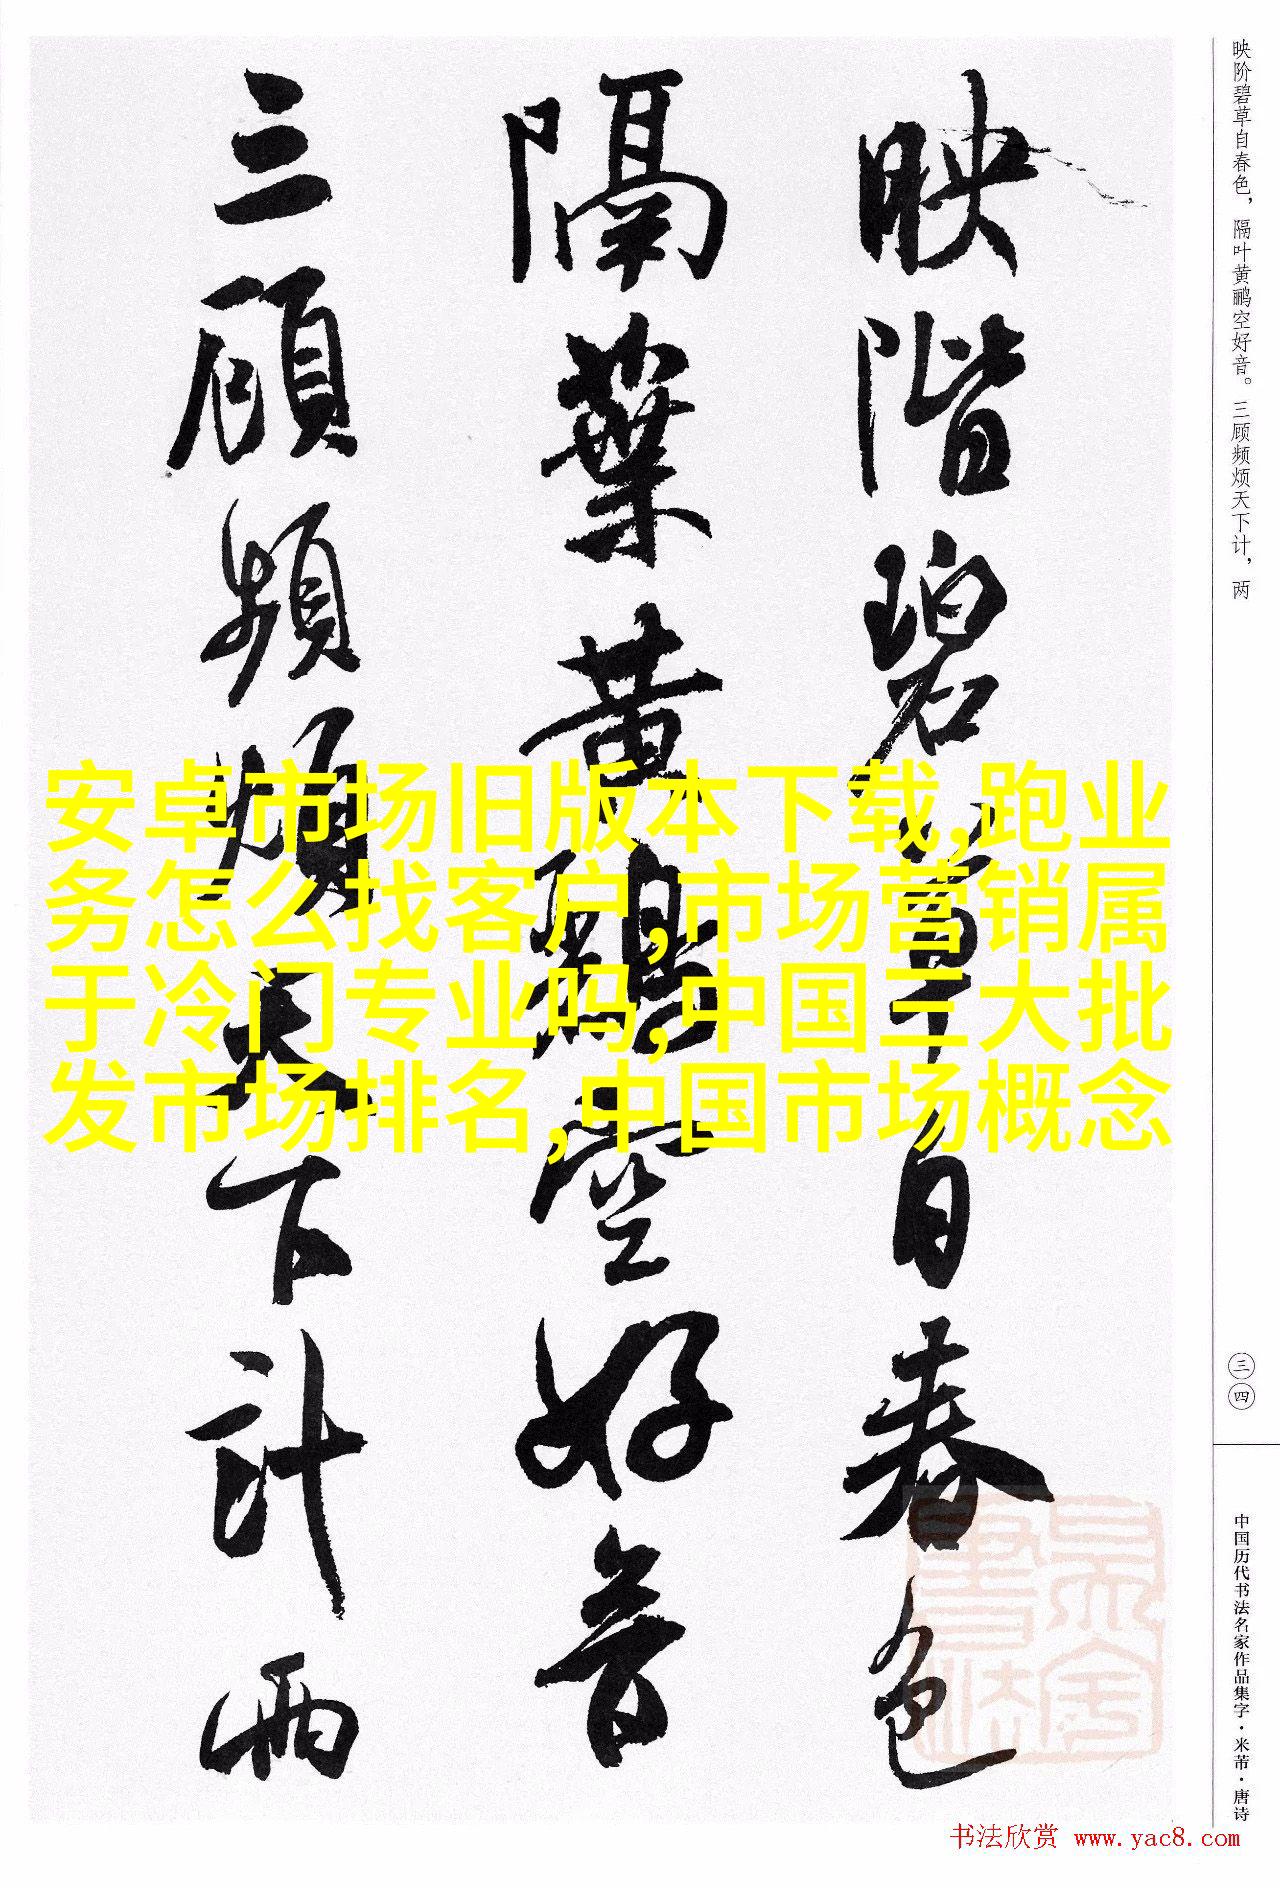 映階碧草自春色
隔葉黄鸝空好音
三顧頻煩天下計兩
安卓市场旧版本下载,跑业
务怎么找客户,市场营销属
于冷门专业吗,中国三大批
发市场排名,中国市场概念
映阶碧草自春色，隔叶黄鹂空好音。三顾频烦天下计，两
三四
中国历代书法名家作品集字·米芾·唐诗
书法欣赏 www.yac8.com